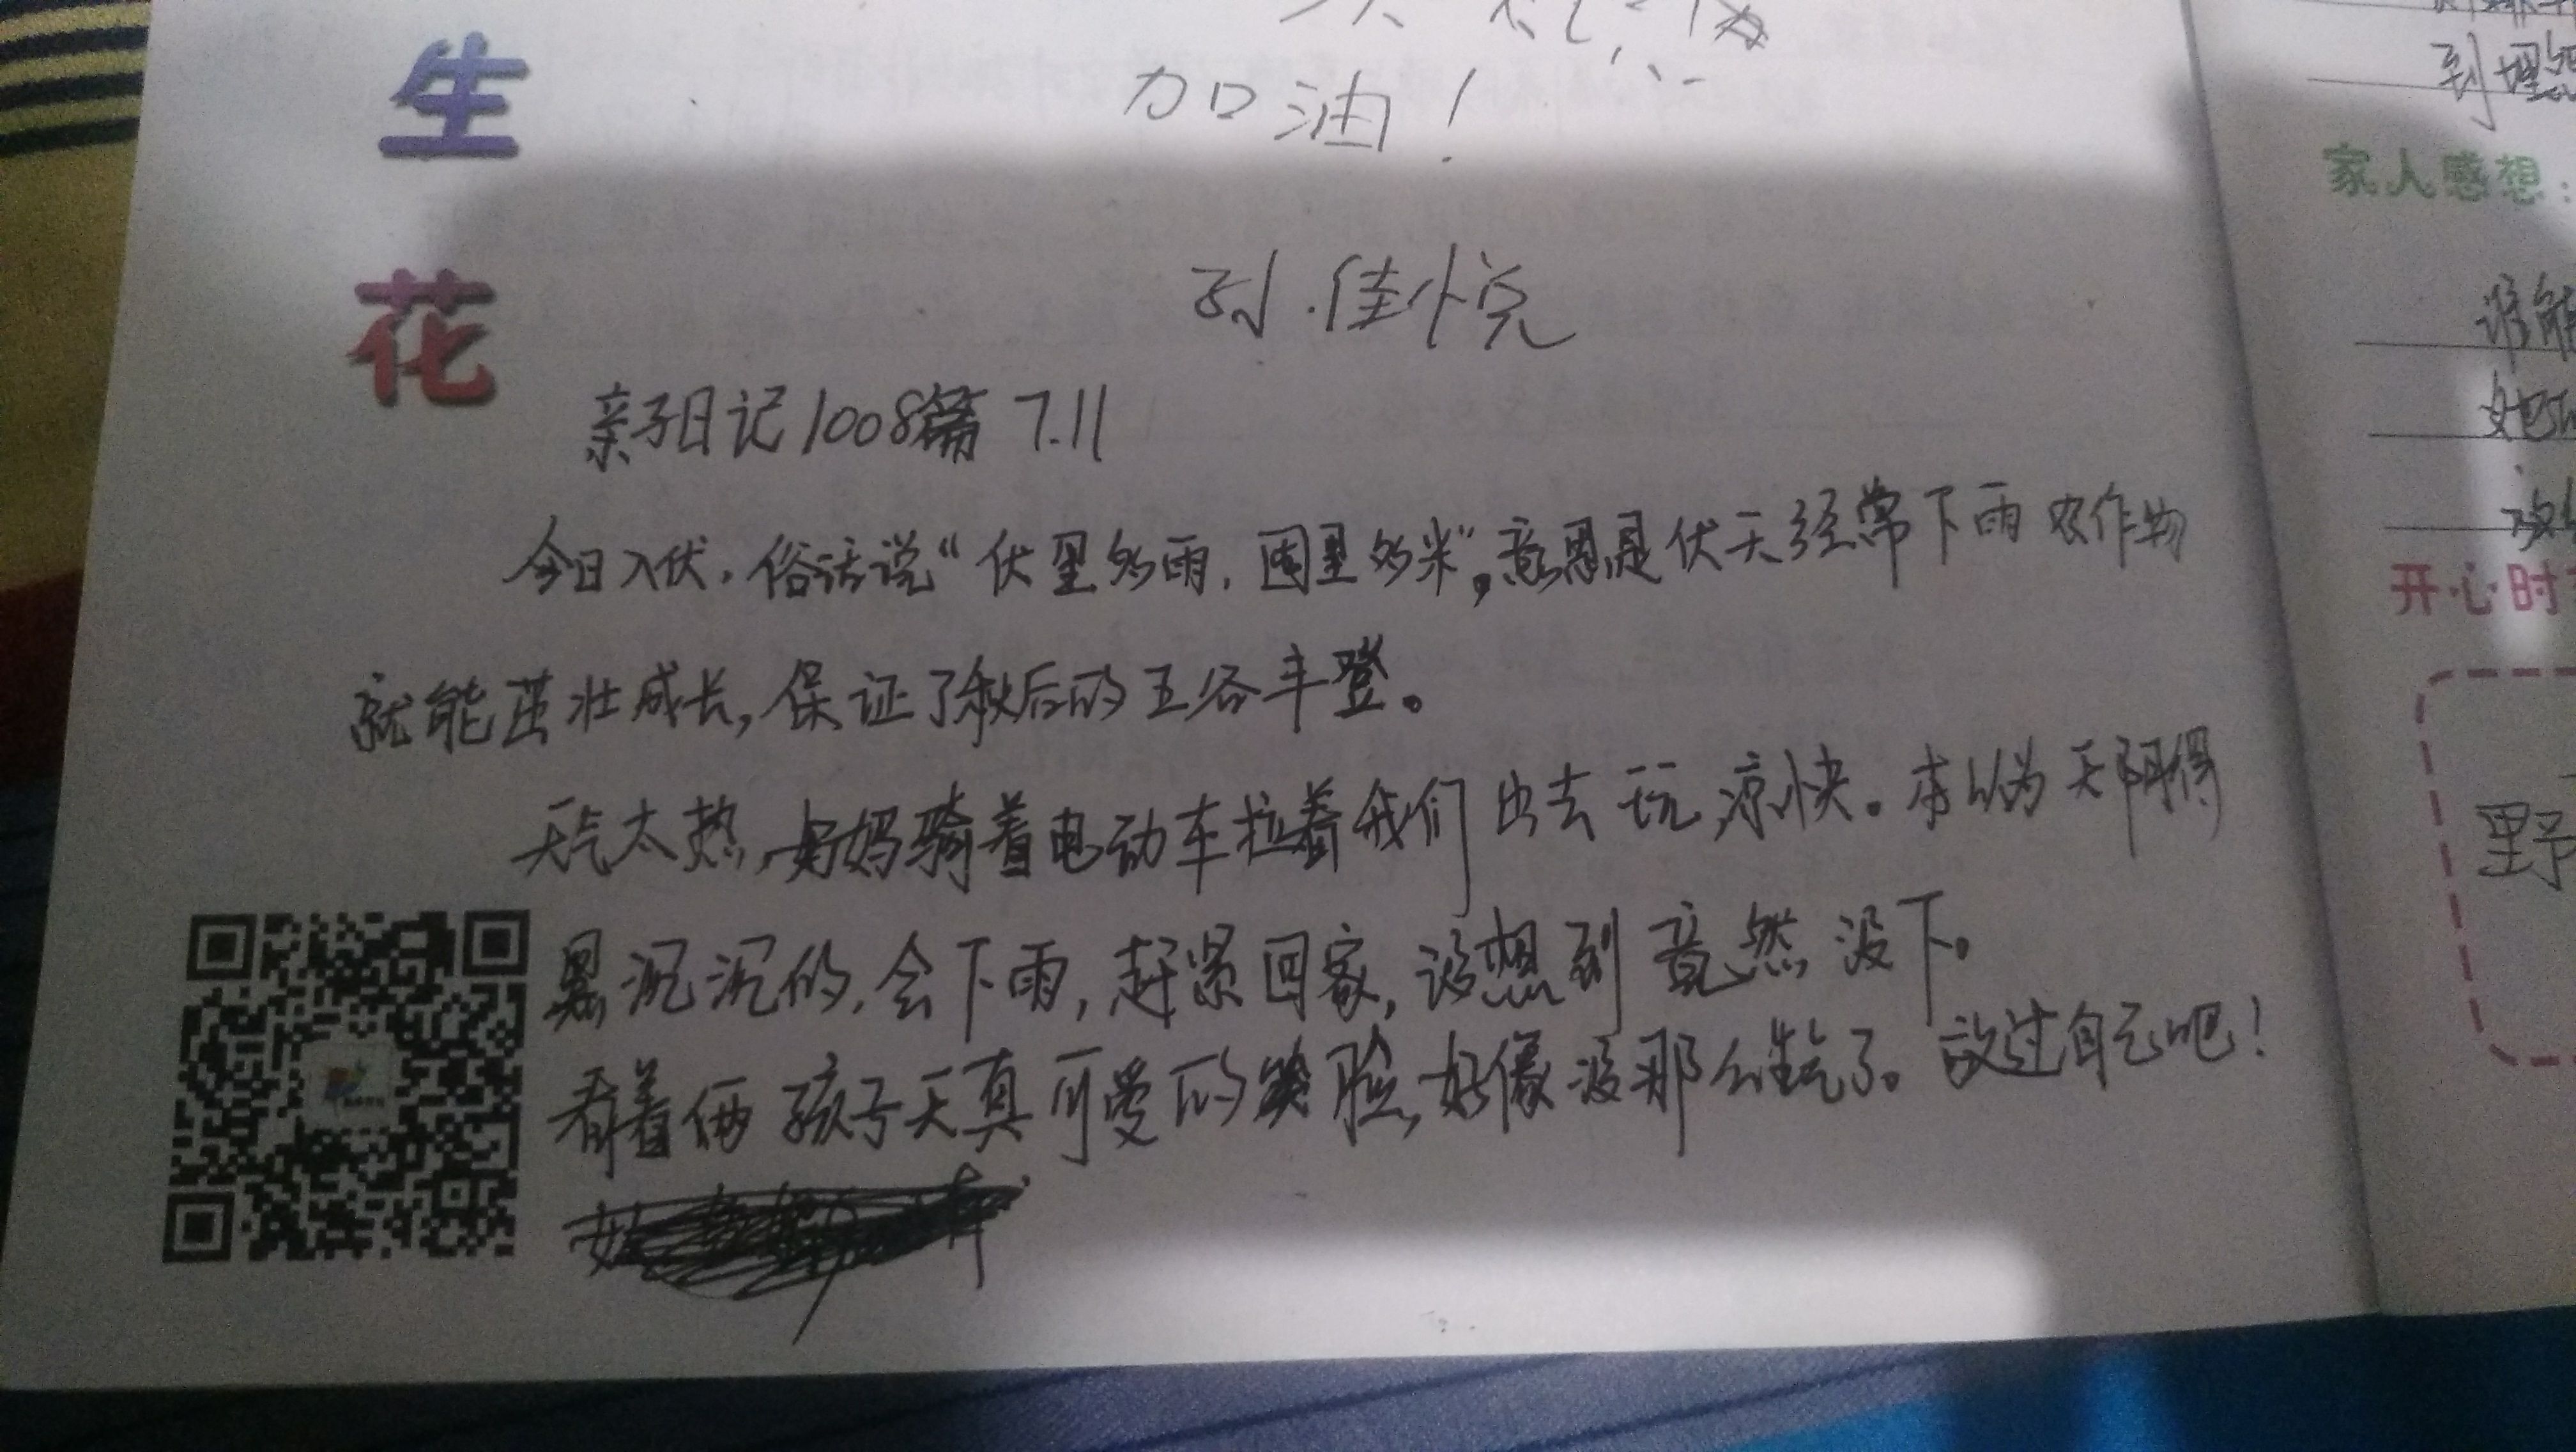 生
花
加油！
孙佳悦
亲子日记1008篇 7.11
今日入伏，俗话说“伏里多雨，囤里多米”，意思是伏天经常下雨 农作物
就能茁壮成长，保证了秋后的五谷丰登。
天气太热，妈妈骑着电动车拉着我们出去玩，凉快。本以为天阴得
黑沉沉的，会下雨，赶紧回家，没想到竟然没下。
看着俩孩子天真可爱的笑脸，好像没那么生气了。放过自己吧！
到埋怨
家人感想：
谁能
她
开心时
野